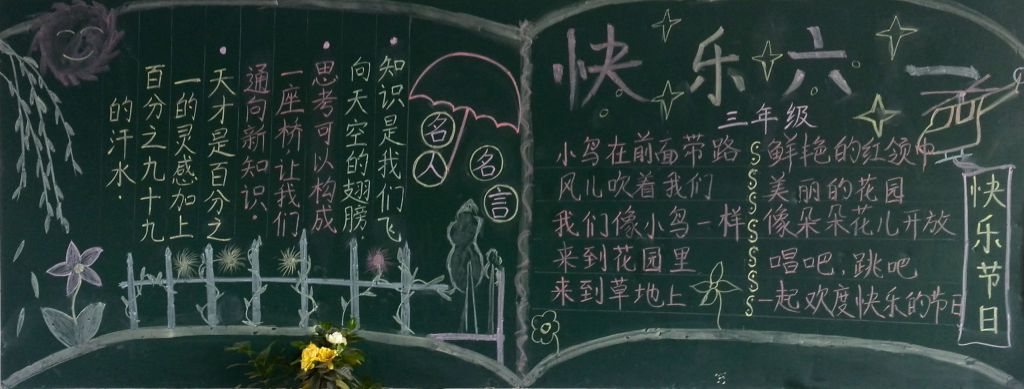 名人
名言
知识是我们飞
向天空的翅膀
思考可以构成
一座桥让我们
通向新知识.
天才是百分之
一的灵感加上
百分之九十九
的汗水.
快乐六一
三年级
小鸟在前面带路
风儿吹着我们
我们像小鸟一样
来到花园里
来到草地上
鲜艳的红领巾
美丽的花园
像朵朵花儿开放
唱吧,跳吧
一起欢度快乐的节日
快乐节日